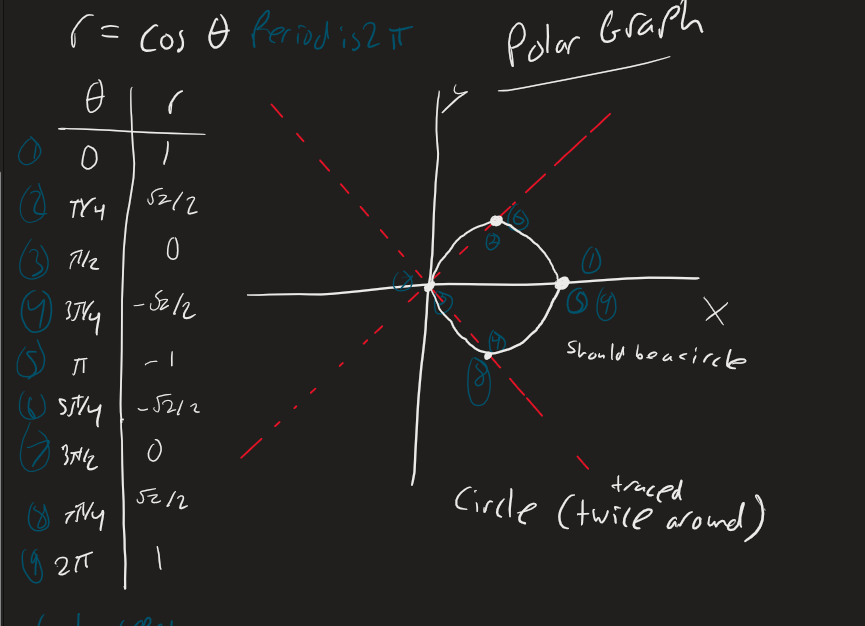 r = cos θ Period is 2π
Polar Graph
θ r
① 0 1
② π/4 √2/2
③ π/2 0
④ 3π/4 -√2/2
⑤ π -1
⑥ 5π/4 -√2/2
⑦ 3π/2 0
⑧ 7π/4 √2/2
⑨ 2π 1
y
②
①
⑤ ⑨
x
④
⑧
should be a circle
traced
Circle (twice around)